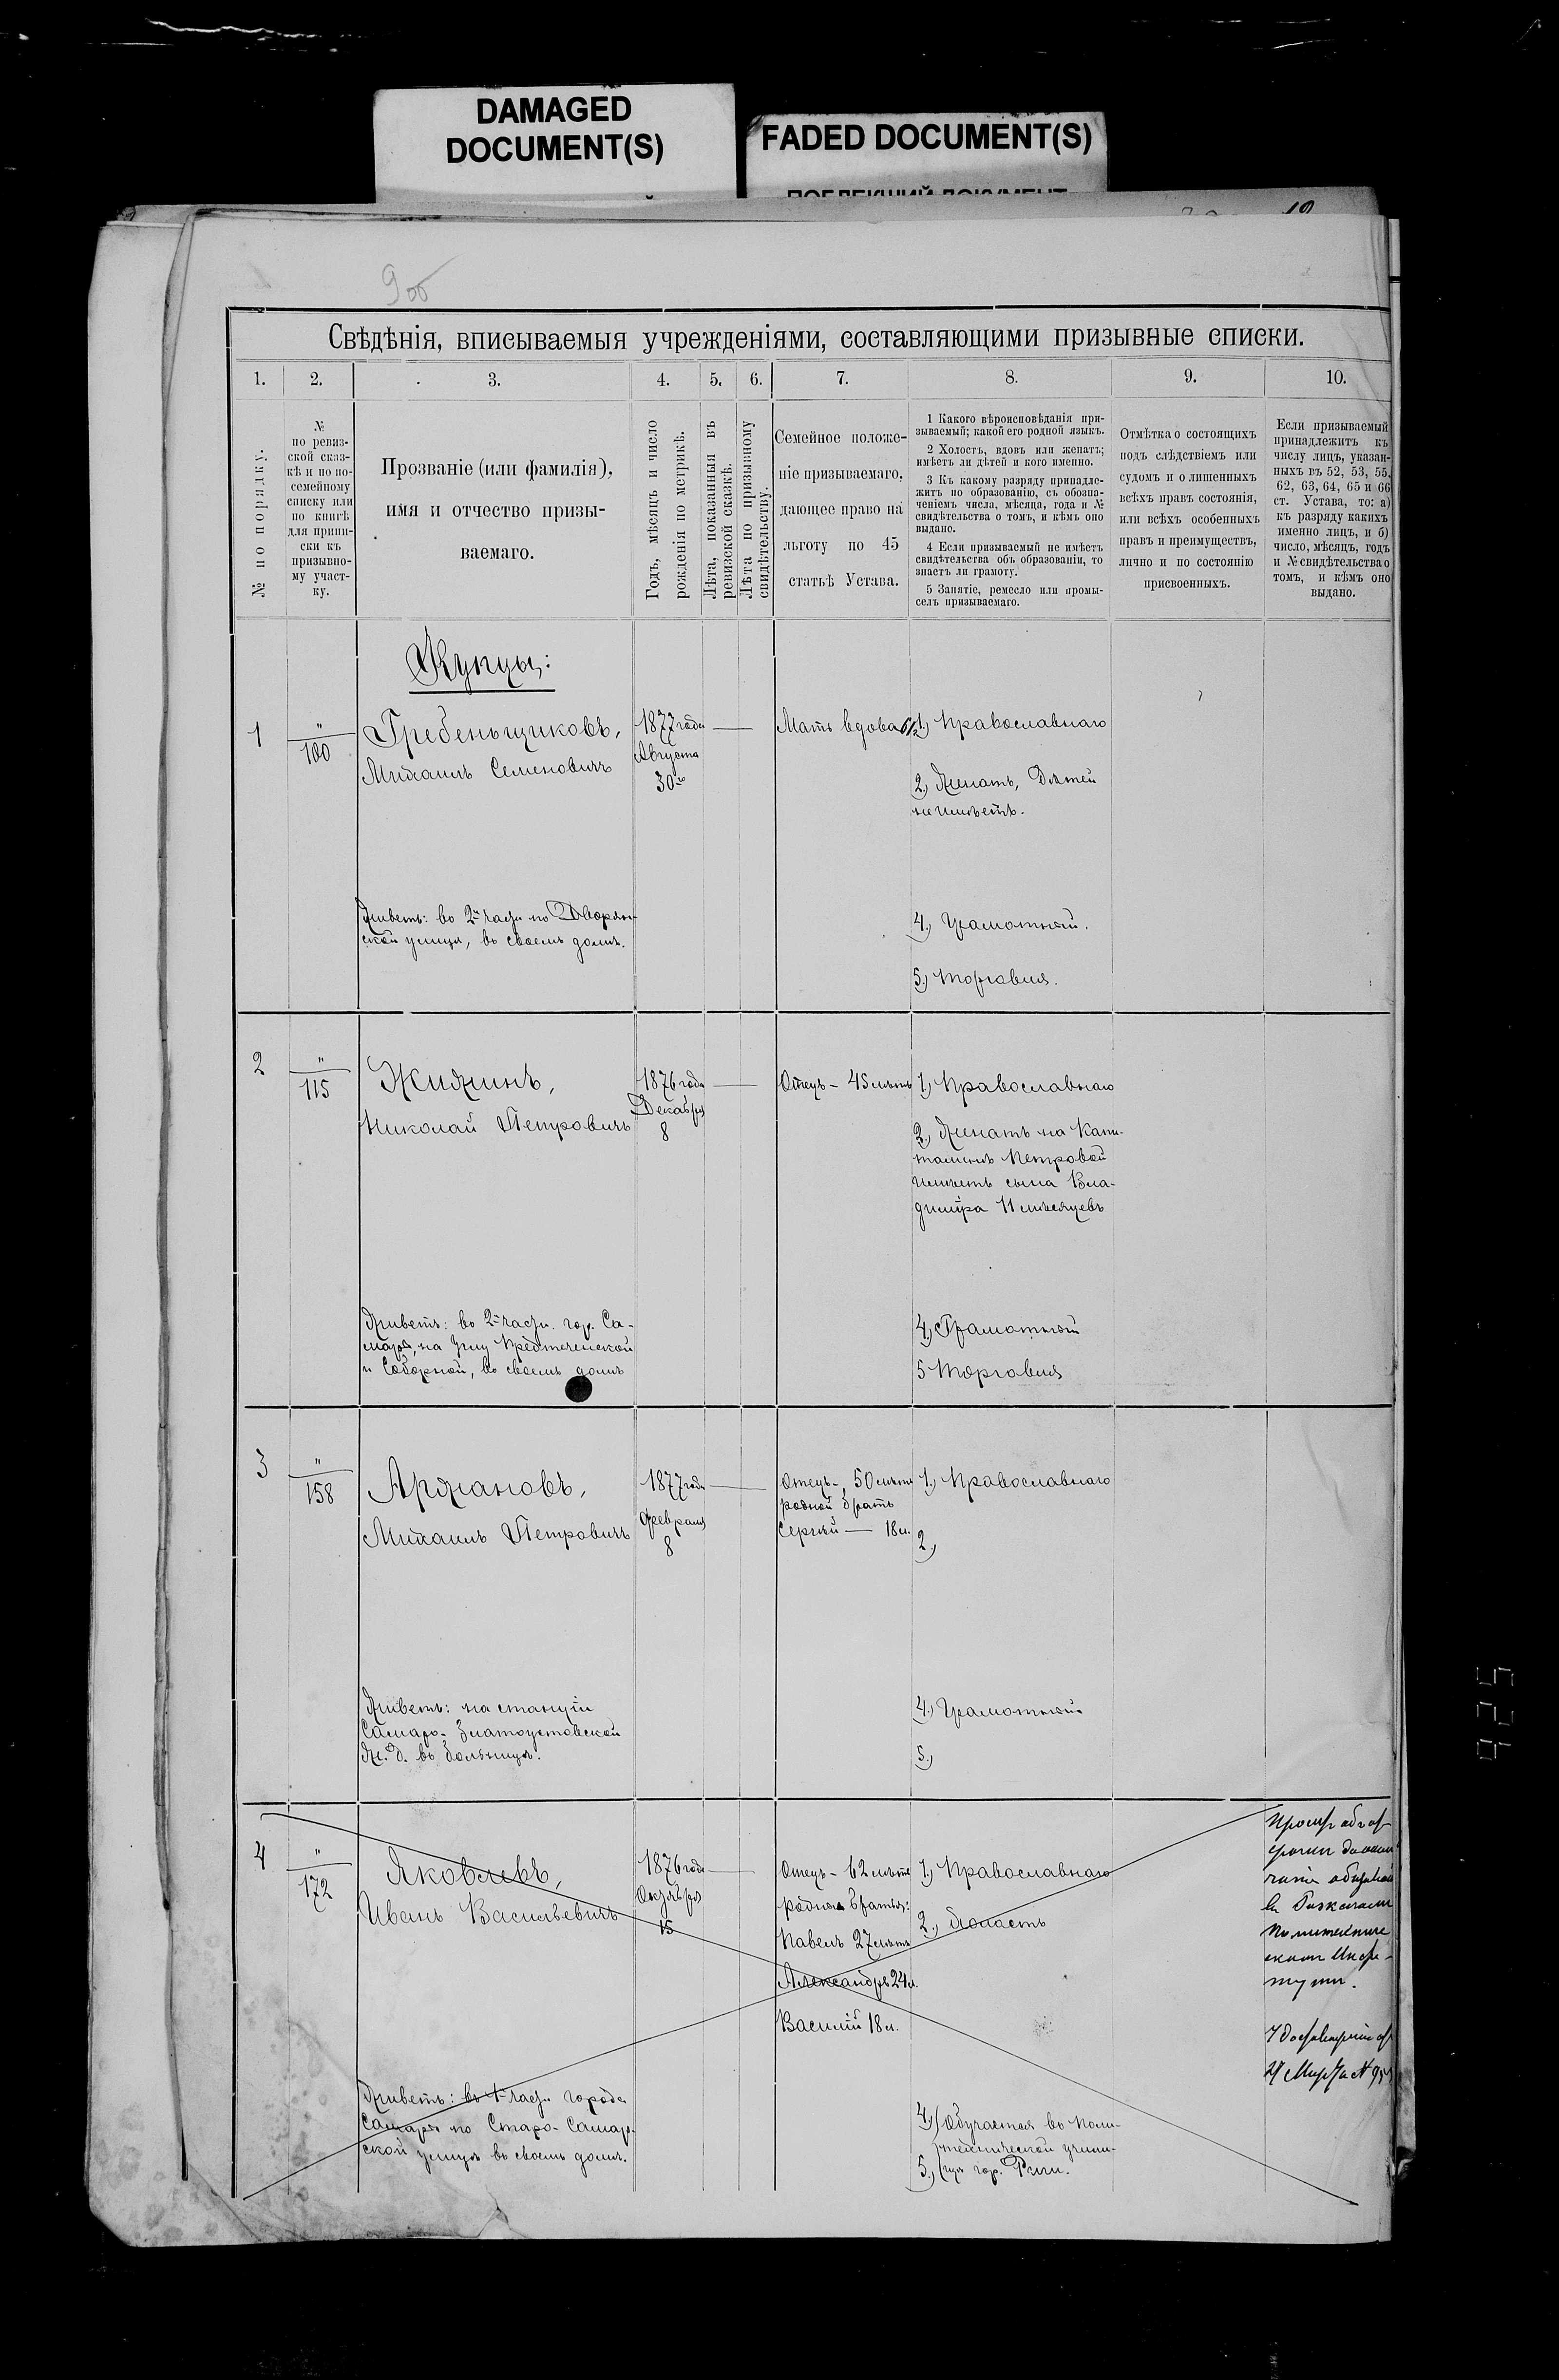 DAMAGED
DOCUMENT(S)
FADED DOCUMENT(S)
900
Свѣдѣнія, вписываемыя учрежденіями, составляющими призывные списки.
1. 2. 3. 4. 5. 6. 7. 8. 9. 10.
№ по порядку.
№
по ревиз-
ской сказ-
кѣ и по по-
семейному
списку или
по книгѣ
для припи-
ски къ
призывно-
му участ-
ку.
Прозваніе (или фамилія),
имя и отчество призы-
ваемаго.
Годъ, мѣсяцъ и число
рожденія по метрикѣ.
Лѣта, показанныя въ
ревизской сказкѣ.
Лѣта по призывному
свидѣтельству.
Семейное положе-
ніе призываемаго,
дающее право на
льготу по 45
статьѣ Устава.
1 Какого вѣроисповѣданія при-
зываемый; какой его родной языкъ.
2 Холостъ, вдовъ или женатъ;
имѣетъ ли дѣтей и кого именно.
3 Къ какому разряду принадле-
житъ по образованію, съ обозна-
ченіемъ числа, мѣсяца, года и №
свидѣтельства о томъ, и кѣмъ оно
выдано.
4 Если призываемый не имѣетъ
свидѣтельства объ образованіи, то
знаетъ ли грамоту.
5 Занятіе, ремесло или промы-
селъ призываемаго.
Отмѣтка о состоящихъ
подъ слѣдствіемъ или
судомъ и о лишенныхъ
всѣхъ правъ состоянія,
или всѣхъ особенныхъ
правъ и преимуществъ,
лично и по состоянію
присвоенныхъ.
Если призываемый
принадлежитъ къ
числу лицъ, указан-
ныхъ въ 52, 53, 55,
62, 63, 64, 65 и 66
ст. Устава, то: а)
къ разряду какихъ
именно лицъ, и б)
число, мѣсяцъ, годъ
и № свидѣтельства о
томъ, и кѣмъ оно
выдано.
Купцы:
1
"
100
Гребеньщиковъ,
Михаилъ Семеновичъ
1877 года
Августа
30го
Мать вдова
1.) Православнаго
2.) Женатъ, Дѣтей
не имѣетъ.
Живетъ: во 2й части по Дворян-
ской улицѣ, въ своемъ домѣ.
4.) Грамотный.
5.) Торговля.
2
"
115
Жижинъ,
Николай Петровичъ
1876 года
Декабря
8
Отецъ - 45 лѣтъ
1.) Православнаго
2.) Женатъ на Капи-
толинѣ Петровой
имѣетъ сына Вла-
диміра 11 мѣсяцевъ
Живетъ: во 2й части гор. Са-
мары, на углу Предтеченской
и Соборной, въ своемъ домѣ
4.) Грамотный
5 Торговля
3
"
158
Аржановъ,
Михаилъ Петровичъ
1877 года
Февраля
8
Отецъ - 50 лѣтъ
родной братъ
Сергѣй — 18 л.
1.) Православнаго
2.)
Живетъ: на станціи
Самаро-Златоустовской
Ж. Д. въ больницѣ.
4.) Грамотный
5.)
4
"
172
Яковлевъ,
Иванъ Васильевичъ
1876 года
Октября
15
Отецъ - 62 лѣтъ
родные братья:
Павелъ 27 лѣтъ
Александръ 24 л.
Василій 18 л.
1.) Православнаго
2.) Холостъ
Живетъ: въ 1й части города
Самары по Старо-Самар-
ской улицѣ въ своемъ домѣ.
4.) Обучается въ Поли-
техническомъ учили-
5.) щѣ гор. Риги.
925